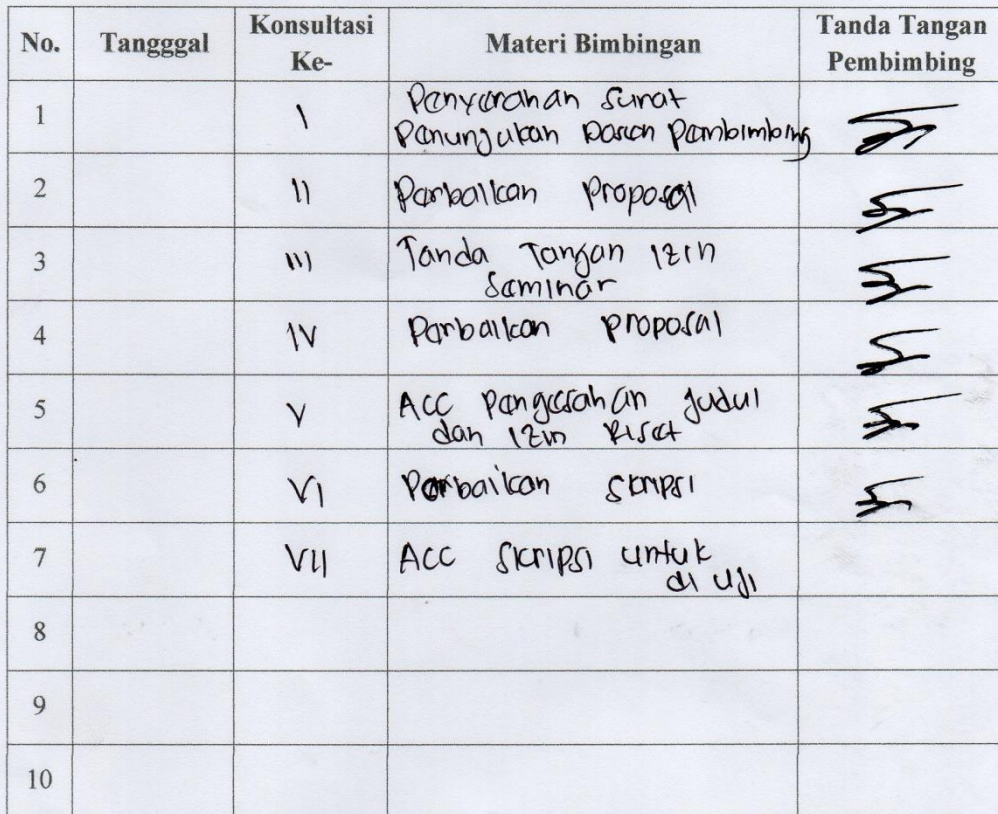 No. Tangggal Konsultasi Ke- Materi Bimbingan Tanda Tangan Pembimbing
1 I Penyerahan Surat
Penunjukan Dosen Pembimbing
2 II Perbaikan Proposal
3 III Tanda Tangan Izin
Seminar
4 IV Perbaikan Proposal
5 V ACC Pengesahan Judul
dan Izin Riset
6 VI Perbaikan Skripsi
7 VII ACC Skripsi untuk
di uji
8
9
10